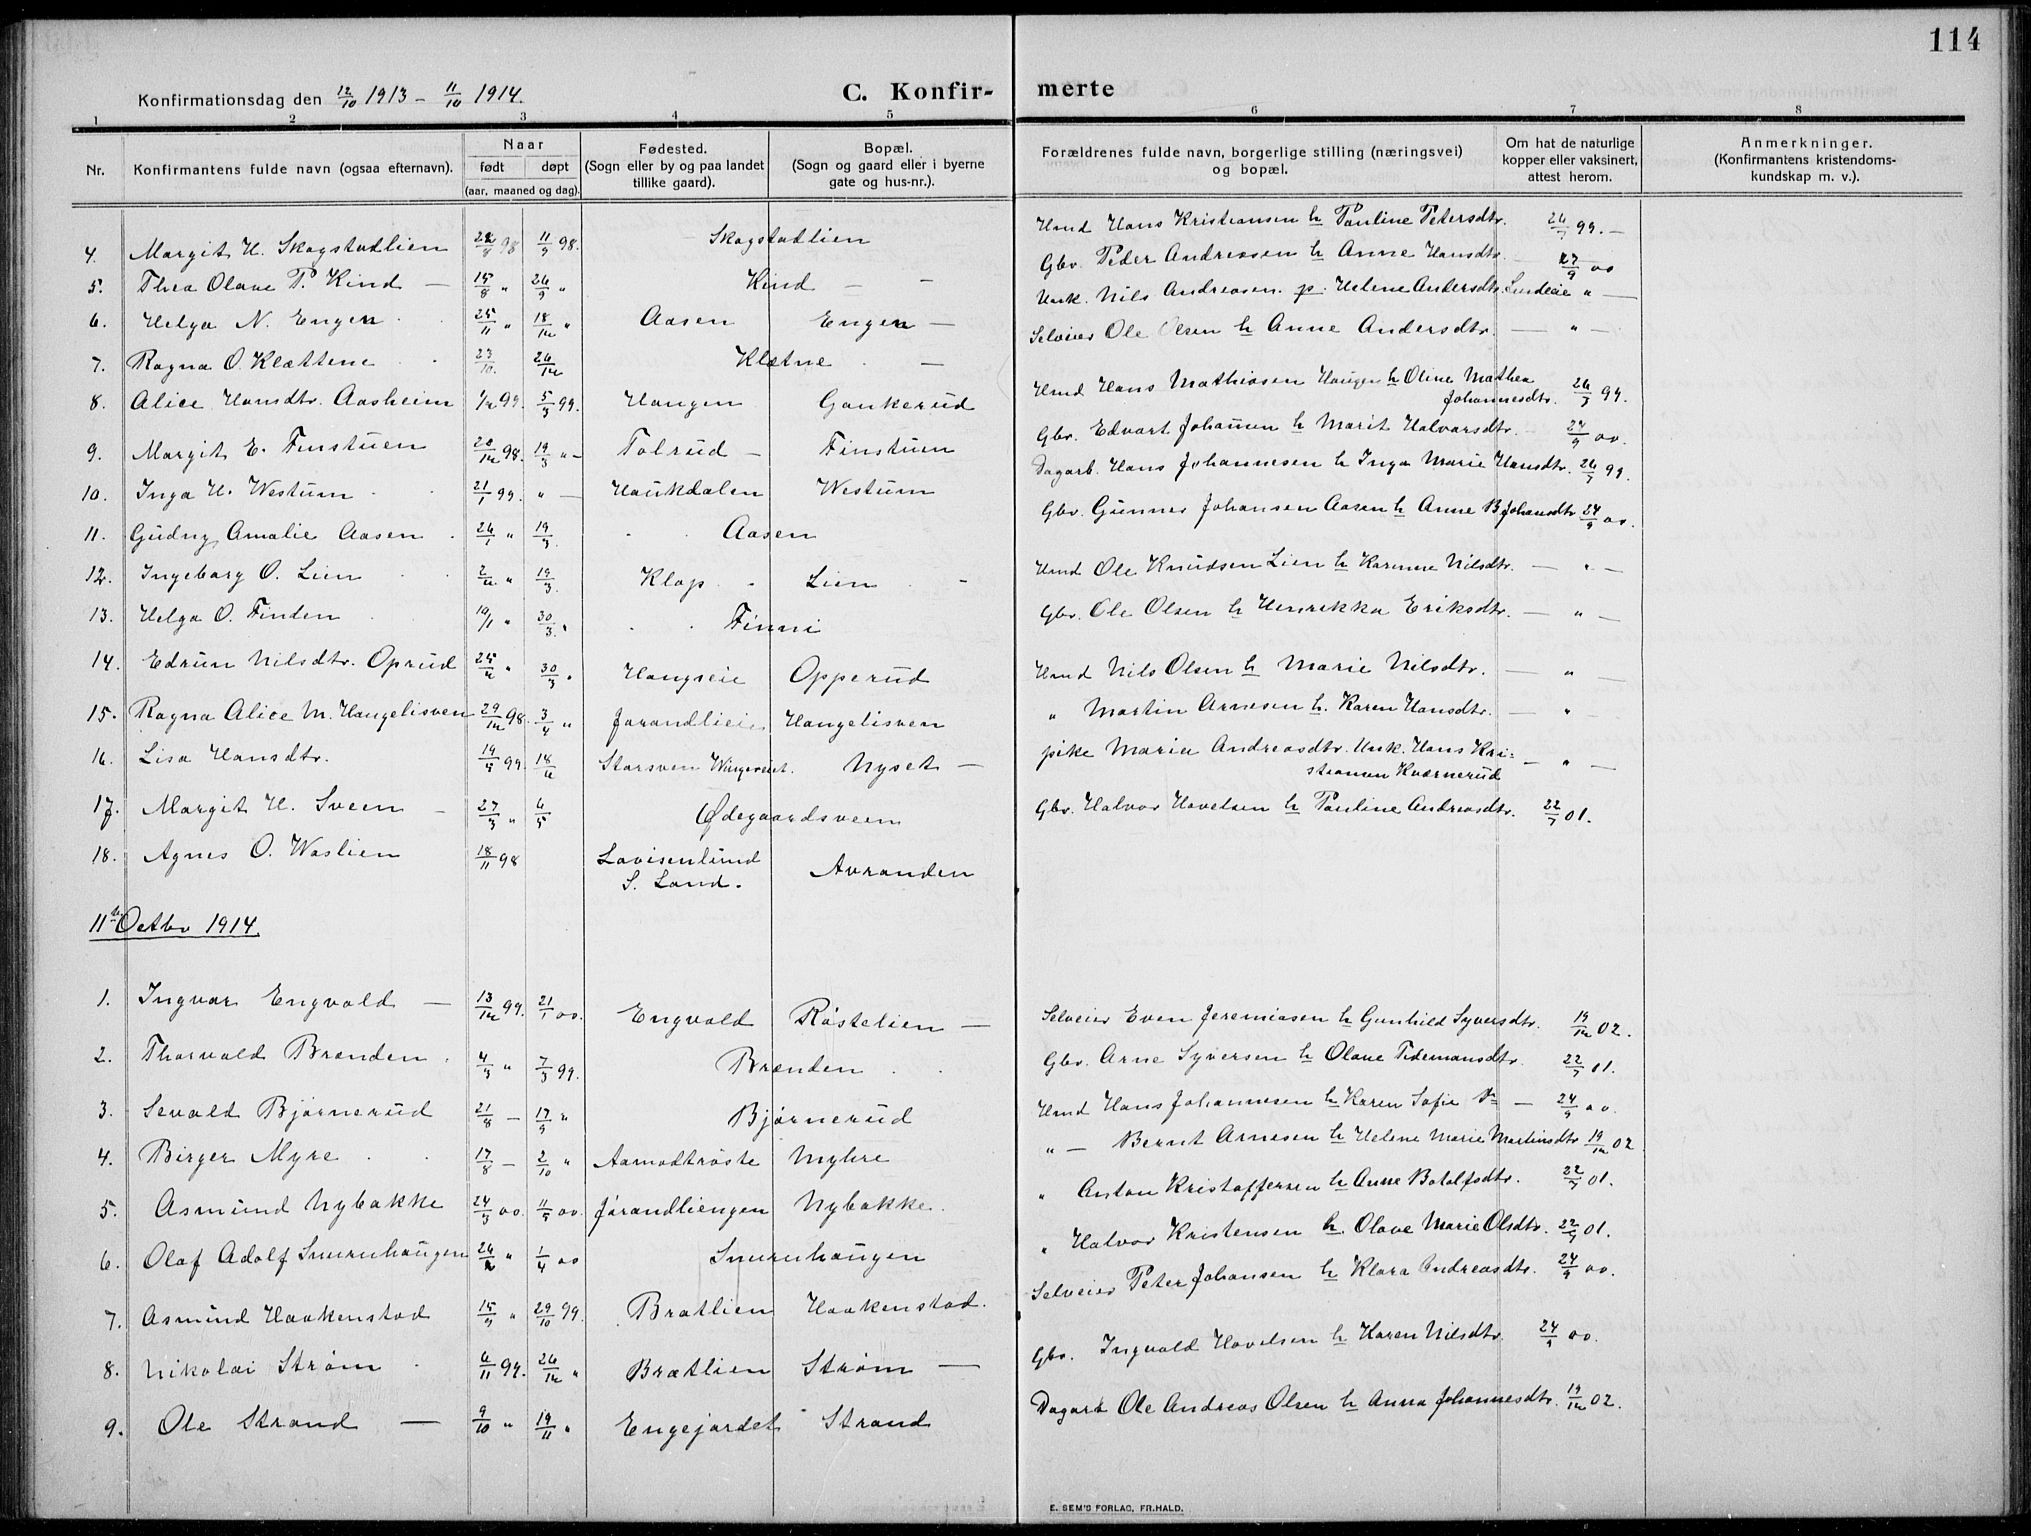 114
Konfirmationsdag den 12/10 1913 – 11/10 1914.
C. Konfir- merte
1 2 3 4 5 6 7 8
Nr.
Konfirmantens fulde navn (ogsaa efternavn).
Naar
født døpt
(aar, maaned og dag).
Fødested.
(Sogn eller by og paa landet
tillike gaard).
Bopæl.
(Sogn og gaard eller i byerne
gate og hus-nr.).
Forældrenes fulde navn, borgerlige stilling (næringsvei)
og bopæl.
Om hat de naturlige
kopper eller vaksinert,
attest herom.
Anmerkninger.
(Konfirmantens kristendoms-
kundskap m. v.).
4. Margit H. Skogstadlien 11/9 98. Skogstadlien Hmd Hans Kristiansen h Pauline Petersdtr. 99. —
5. Thea Olave P. Kind — 15/8 " 26/9 " Kind — — Gbr. Peder Andreasen h Anne Hansdtr. 27/9 00
6. Helga N. Engen 25/11 " 18/12 " Aasen Engen — Unk. Nils Andreasen p. Helene Andersdtr. " —
7. Ragna O. Klættene 23/10. 26/12 Klætne — Selveier Ole Olsen h Anne Andersdtr. — " —
8. Alice Hansdtr. Aasheim 1/2 99. 5/3 99. Haugen Gaukerud Hmd Hans Mathiasen Haugen h Oline Mathea
Johannesdtr. 26/7 99.
9. Margit E. Finstuen 20/12 98. 19/3 " — Tolrud — Finstuen Gbr. Edvart Johansen h Marit Halvorsdtr. 24/9 00.
10. Inga H. Westum 21/1 99. " — Haukdalen Westum Dagarb. Hans Johannesen h Inga Marie Hansdtr. 26/7 99.
11. Gudny Amalie Aasen 26/1 " 19/3. Aasen Gbr. Gunner Johansen Aasen h Anne B Johansdtr 24/9 00.
12. Ingeborg O. Lien " 19/3. Klop Lien Hmd Ole Knudsen Lien h Karenne Nilsdtr. — " —
13. Helga O. Finden 19/1 " 30/3. " Finni Gbr. Ole Olsen h Henrikka Eriksdtr. — " —
14. Edrun Nilsdtr. Oprud " 30/3 " Opperud Hmd Nils Olsen h Marie Nilsdtr. — " —
15. Ragna Alice M. Haugelisven 29/12 98. 3/4 " Jorandlieie Haugelisven " Martin Arnesen h. Karen Hansdtr. — "
16. Lisa Hansdtr. 99. Storsven Nyset — pike Maria Andreasdtr. Unk. Hans Kri-
stiansen Kværnerud — " —
17. Margit H. Sveen — 27/3 " 6/5 Ødegaardsveen Gbr. Halvor Hovelsen h Pauline Andreasdtr. 22/7 01.
18. Agnes O. Waslien 18/11 98 Lovisenlund
S. Land. Avranden
11te Octbr 1914.
1. Ingvar Engvold — 13/12 99. 21/1 00. Engvold Røstelien — Selveier Even Jeremiasen h Gunhild Syversdtr. 19/12 02.
2. Thorvald Brænden 4/3 " 7/3 99. Brænden Gbr. Arne Syversen h Olave Tidemansdtr. 22/7 01.
3. Sevald Bjørnerud 21/8 — 17/9 " Bjørnerud Hmd Hans Johannesen h Karen Sofie — 24/9 00.
4. Birger Myre 17/8 — 2/10 " Aamodtrøste Myhre " — Bernt Arnesen h Helene Marie Martinsdtr 19/12 02
5. Asmund Nybakke 24/3 00. 11/9 00. Jorandliengen Nybakke. " Anton Kristoffersen h Anne Botolfsdtr. 22/7 01.
6. Olaf Adolf Snurnhaugen 26/2 " 1/4 00 Snurnhaugen " Halvor Kristensen h Olave Marie Olsdtr. 22/7 01.
7. Asmund Haakenstad 15/9 " 29/10 99. Bratlien Haakenstad. Selveier Peter Johansen h Klara Andreasdtr. 24/9 00.
8. Nikolai Strøm 6/11 99. 26/12 " Brætlien Strøm — Gbr. Ingvald Hovelsen h Karen Nilsdtr. 24/9 00.
9. Ole Strand — 9/10 " 19/11 " Engejordet Strand Dagarb Ole Andreas Olsen h Anna Johannesdtr. 19/12 02.
E. SEM'S FORLAG, FR.HALD.